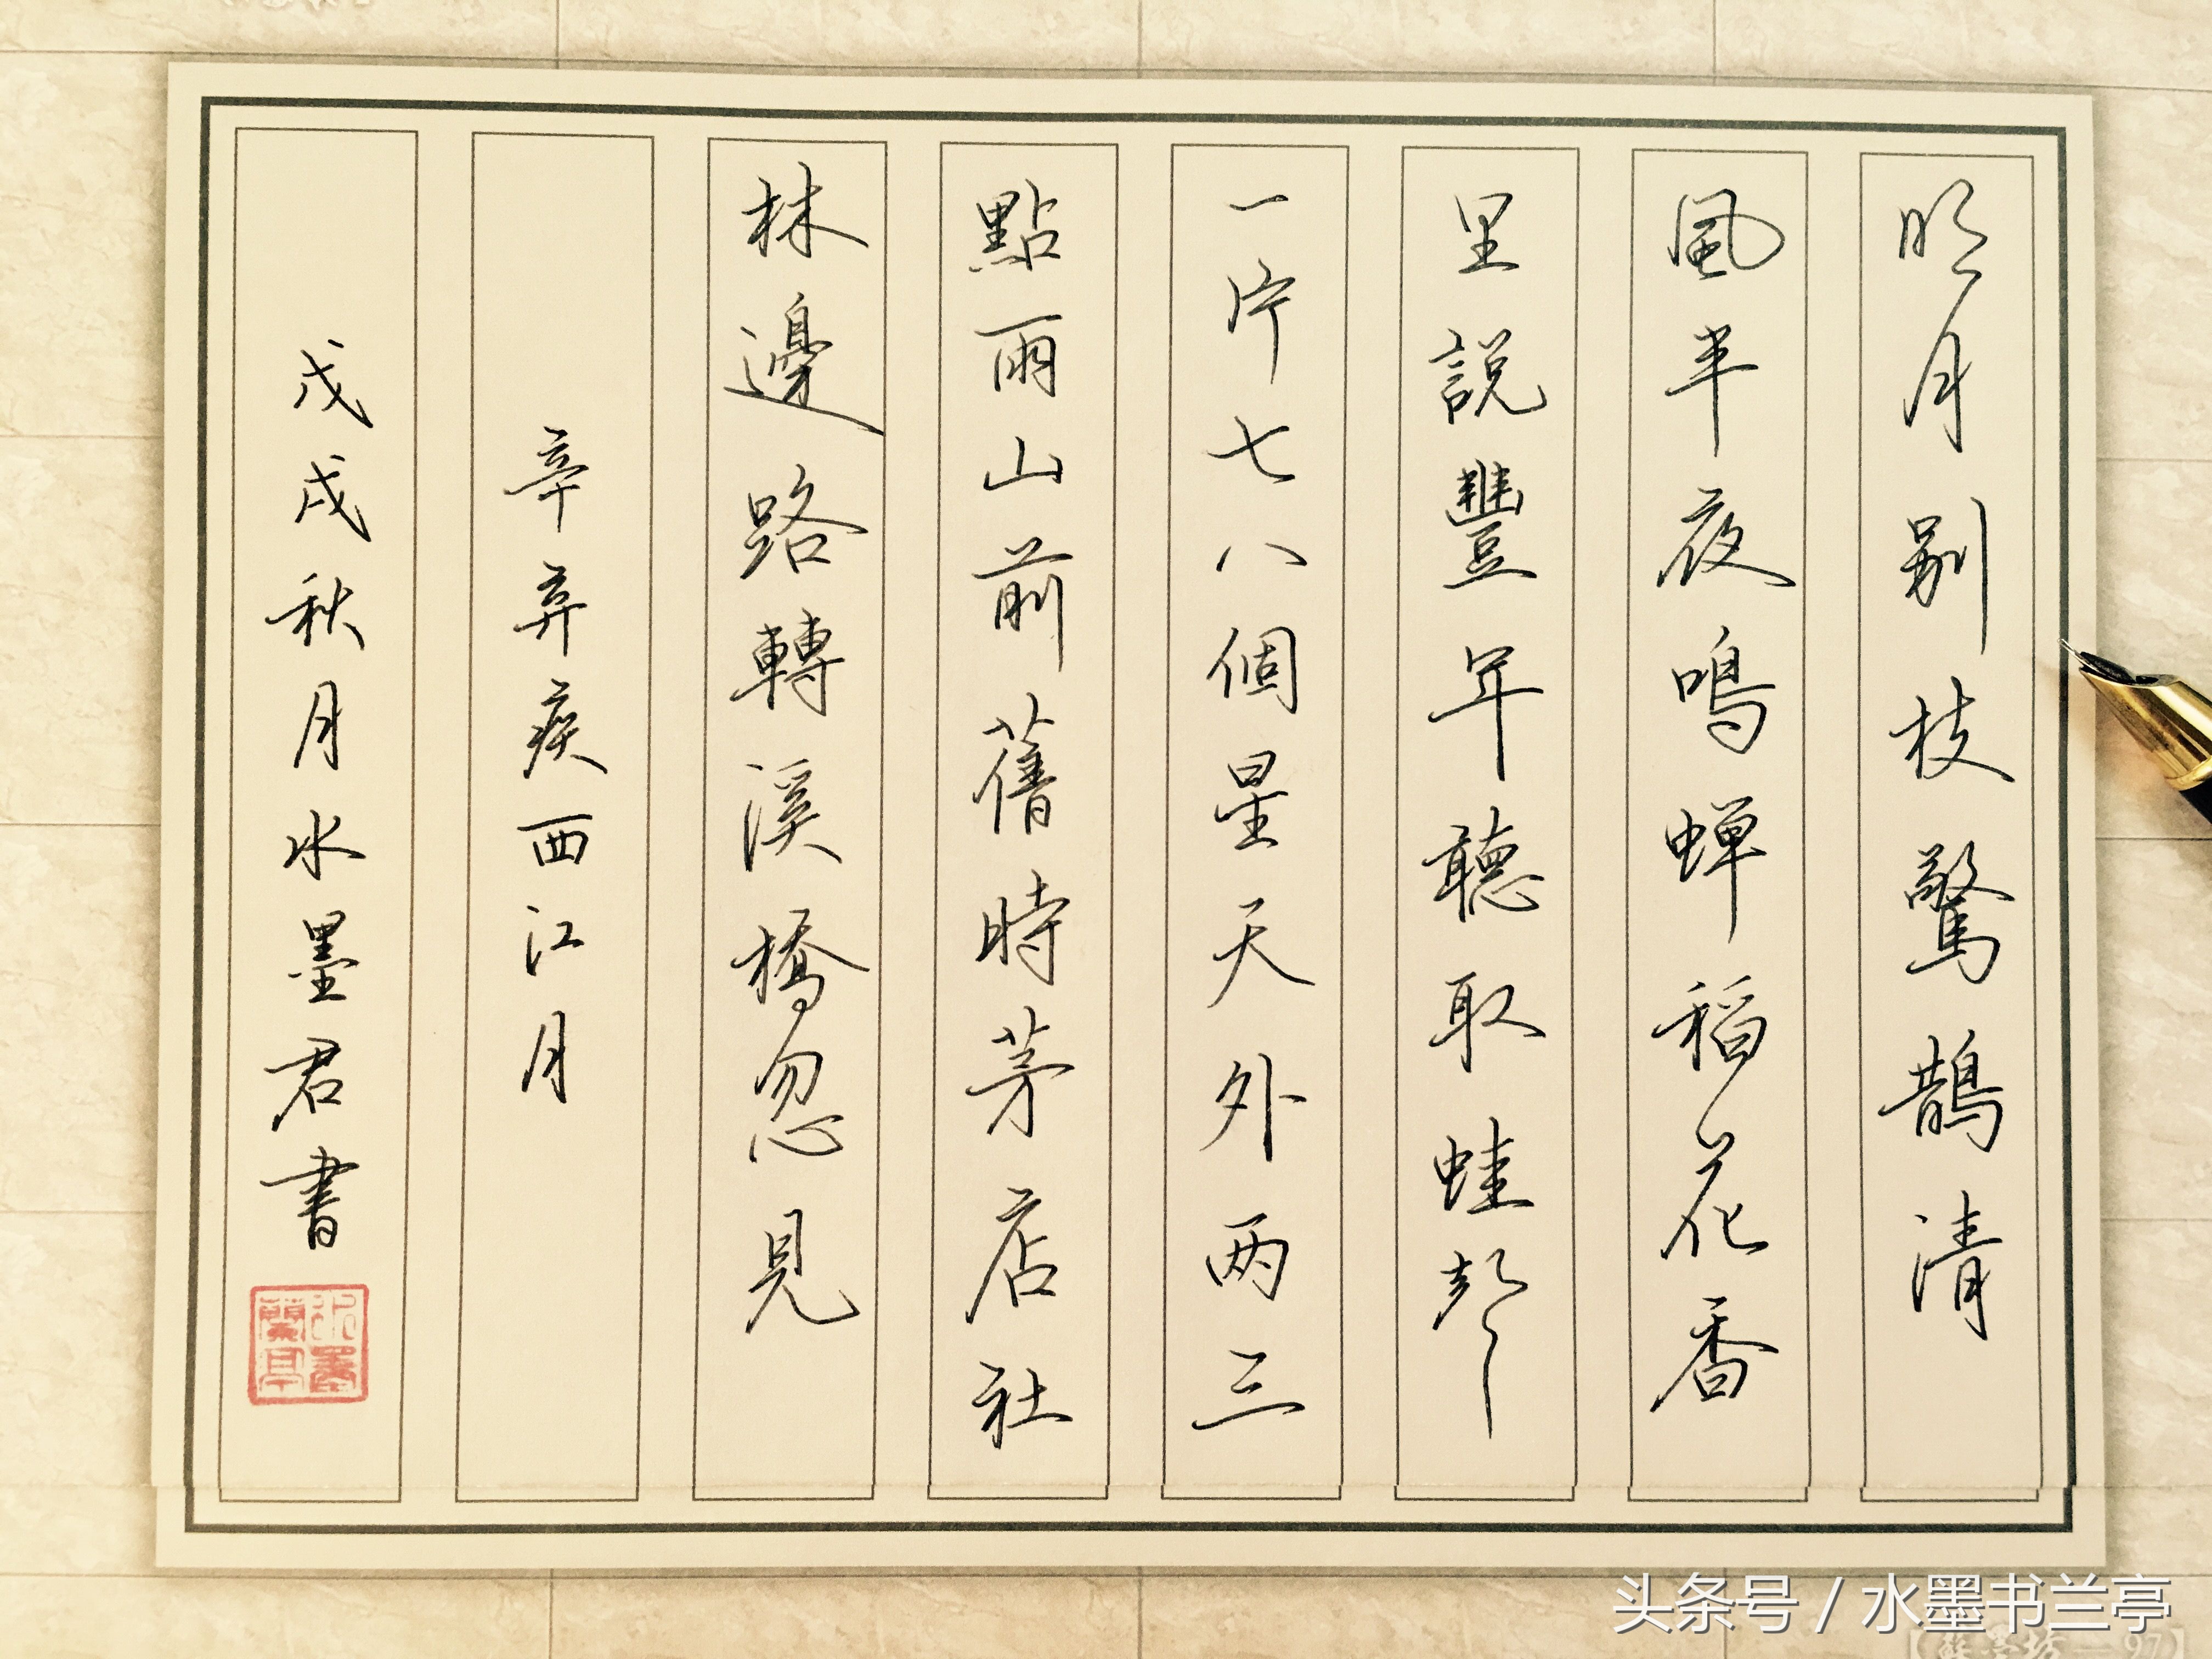 明月别枝驚鵲清
風半夜鳴蟬稻花香
里説豐年聽取蛙聲
一片七八個星天外两三
點雨山前舊時茅店社
林邊路轉溪橋忽見
辛弃疾西江月
戊戌秋月水墨君書
水墨蘭亭
头条号 / 水墨书兰亭